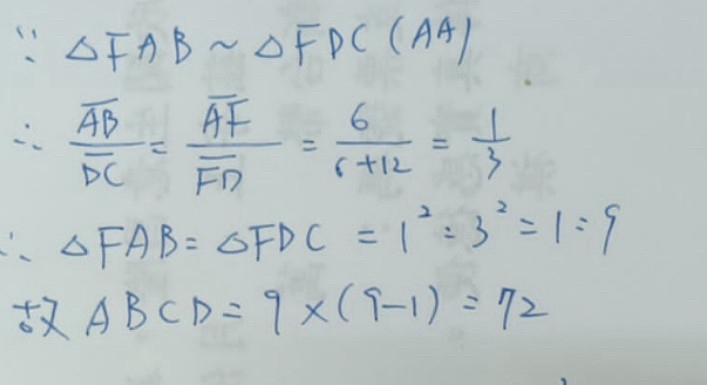 ∵ △FAB ~ △FDC (AA)
∴ A̅B̅/D̅C̅ = A̅F̅/F̅D̅ = 6/(6+12) = 1/3
∴ △FAB : △FDC = 1² : 3² = 1 : 9
故 ABCD = 9 × (9-1) = 72